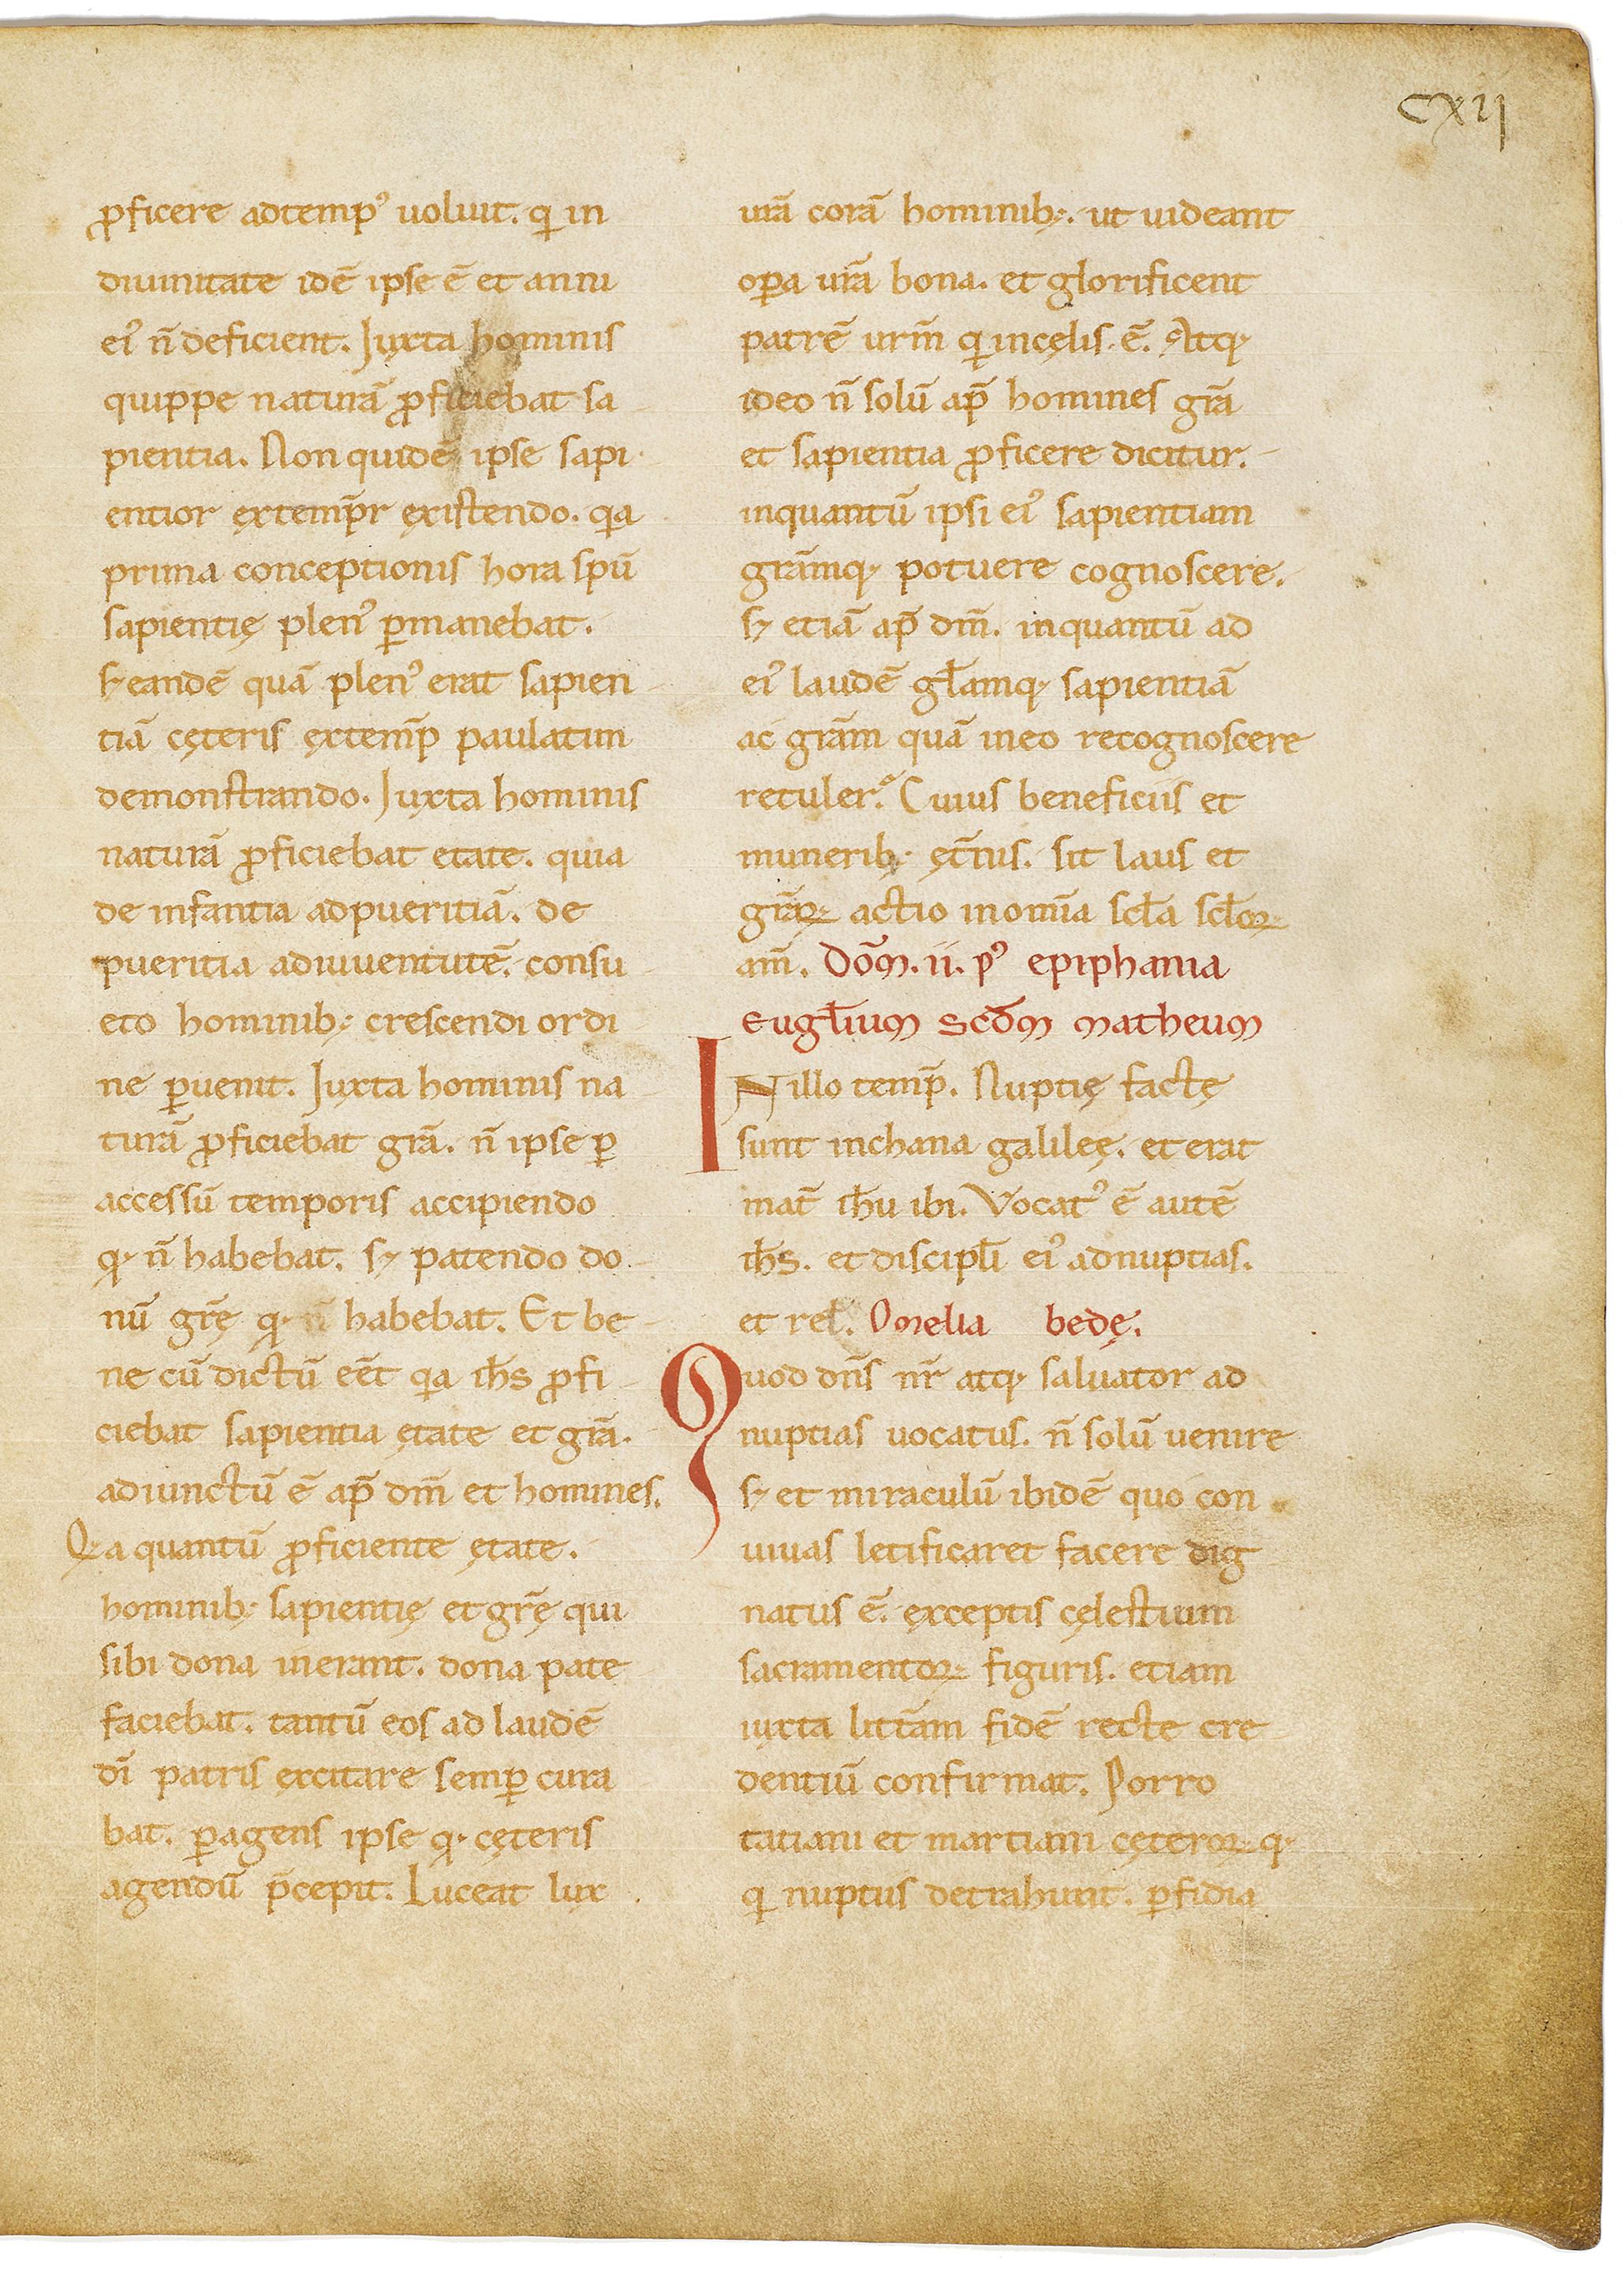 CXII
ꝓficere adtemp᾽ uoluit. q̇ in
diuinitate idē ipse ē et anni
ei᾽ n̄ deficient. Iuxta hominis
quippe naturā ꝓficiebat sa
pientia. Non quidē ipse sapi
entior ęxtemp̄r ęxistendo. q̇a
prima conceptionis hora spū
sapientię plen᾽ ꝑmanebat.
sꝫ eandē quā plen᾽ erat sapien
tiā cęteris ęxtemp̄ paulatim
demonstrando. Iuxta hominis
naturā ꝓficiebat etate. quia
de infantia adpueritiā. de
pueritia adiuuentutē. consu
eto hominibꝫ crescendi ordi
ne ꝑuenit. Iuxta hominis na
turā ꝓficiebat grā. n̄ ipse ꝑ
accessū temporis accipiendo
qꝫ n̄ habebat. sꝫ patendo do
nū grę̄ qꝫ n̄ habebat. Et be
ne cū dictū eēt q̇a ih̄s ꝓfi
ciebat sapientia ętate et grā.
adiunctū ē ap̄ dm̄ et homines.
Q̇a quantū ꝓficiente ętate.
hominibꝫ sapientię et grę̄ qui
sibi dona inerant. dona pate
faciebat. tantū eos ad laudē
dī patris ęxcitare semꝑ cura
bat. ꝑagens ipse qꝫ cęteris
agendū p̄cepit. Luceat lux
urā corā hominibꝫ. ut uideant
oꝑa urā bona. et glorificent
patrē urm̄ q̇ incęlis ē. Atqꝫ
ideo n̄ solū ap̄ homines grā
et sapientia ꝓficere dicitur.
inquantū ipsi ei᾽ sapientiam
grāmqꝫ potuere cognoscere.
sꝫ etiā ap̄ dm̄. inquantū ad
ei᾽ laudē gl̄amqꝫ sapientiā
ac grām quā ineo recognoscere
retuler᾽. Cuius beneficiis et
muneribꝫ ęt̄nis. sit laus et
grāꝝ actio inomīa scl̄a scl̄oꝝ
am̄. Dōm. ii. p᾽ epiphania
Eugl̄ium scdm̄ matheum
IN illo temp̄. Nuptię factę
sunt inchana galileę. et erat
mat̄ ih̄u ibi. Vocat᾽ ē autē
ih̄s. et discipl̄i ei᾽ adnuptias.
et rel̄. Omelia bedę.
Quod dn̄s nr̄ atqꝫ saluator ad
nuptias uocatus. n̄ solū uenire
sꝫ et miraculū ibidē quo con
uiuas letificaret facere dig
natus ē. ęxceptis cęlestium
sacramentoꝝ figuris. etiam
iuxta litt̄am fidē recte cre
dentiū confirmat. Porro
tatiani et martiani cęteroꝝqꝫ
q̇ nuptiis detrahunt. ꝑfidia